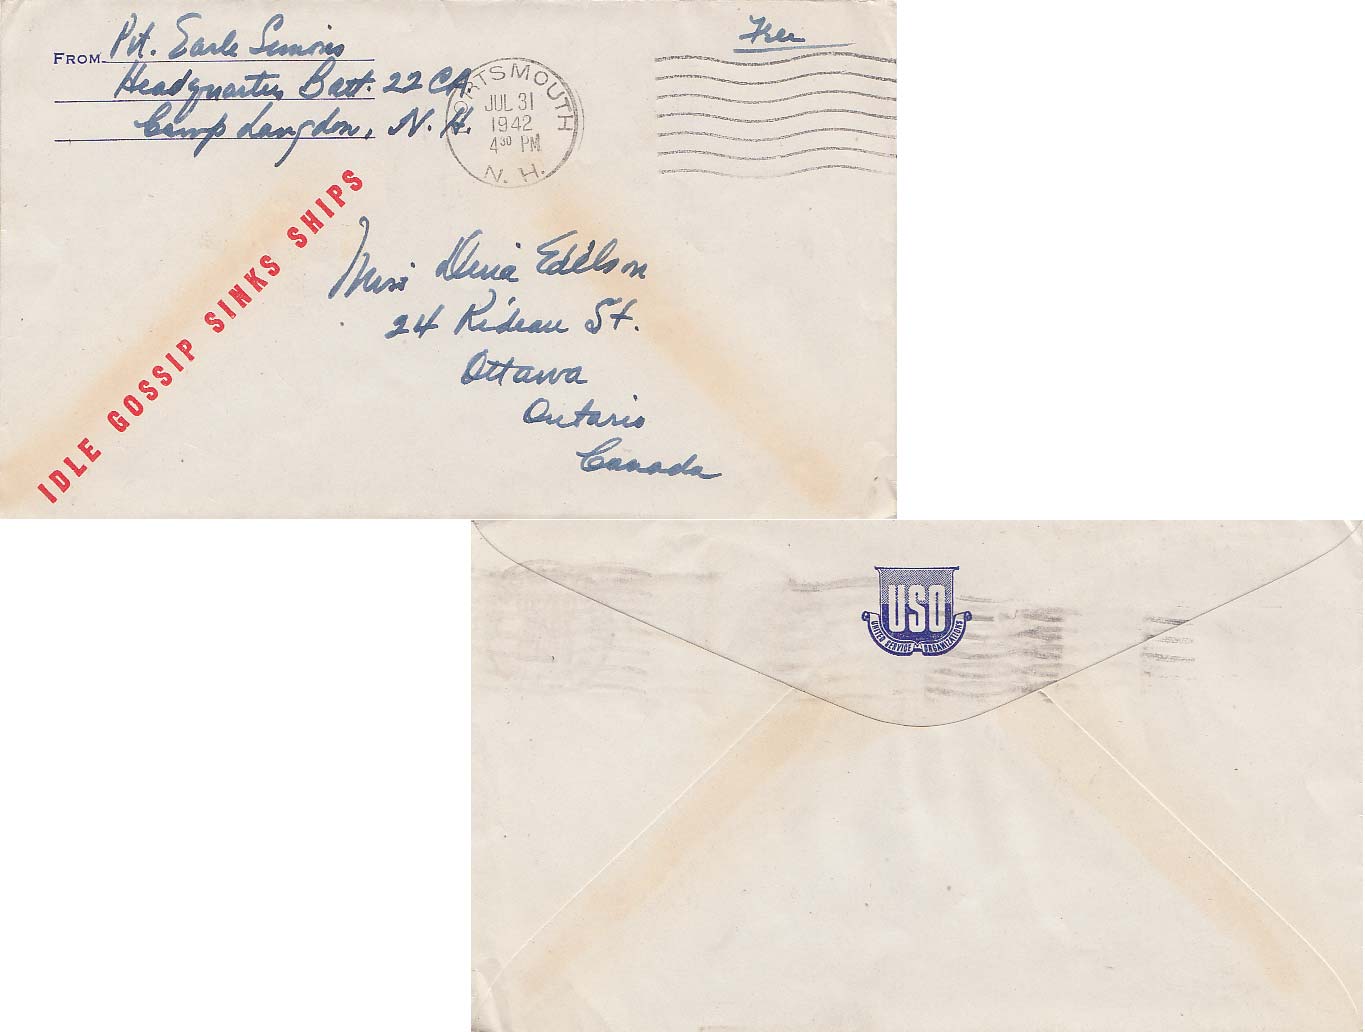 FROM Pvt. Earle Simons
Headquarters Batt. 22 CA.
Camp Langdon, N. H.
Free
PORTSMOUTH
JUL 31
1942
4 30 PM
N. H.
IDLE GOSSIP SINKS SHIPS
Miss Dena Edelson
24 Rideau St.
Ottawa
Ontario
Canada
USO
UNITED SERVICE ORGANIZATIONS